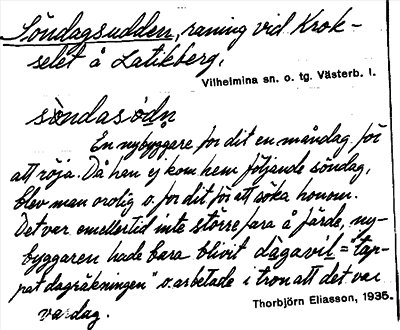 Söndagsudden, raning vid Krok-
selet å Latikberg.
Vilhelmina sn. o. tg. Västerb. l.
sòndasòdn
En nybyggare for dit en måndag för
att röja. Då han ej kom hem följande söndag,
blev man orolig o. for dit för att söka honom.
Det var emellertid inte större fara å färde, ny-
byggaren hade bara blivit dàgavil = "tap-
pat dagräkningen" o. arbetade i tron att det var
vardag.
Thorbjörn Eliasson, 1935.